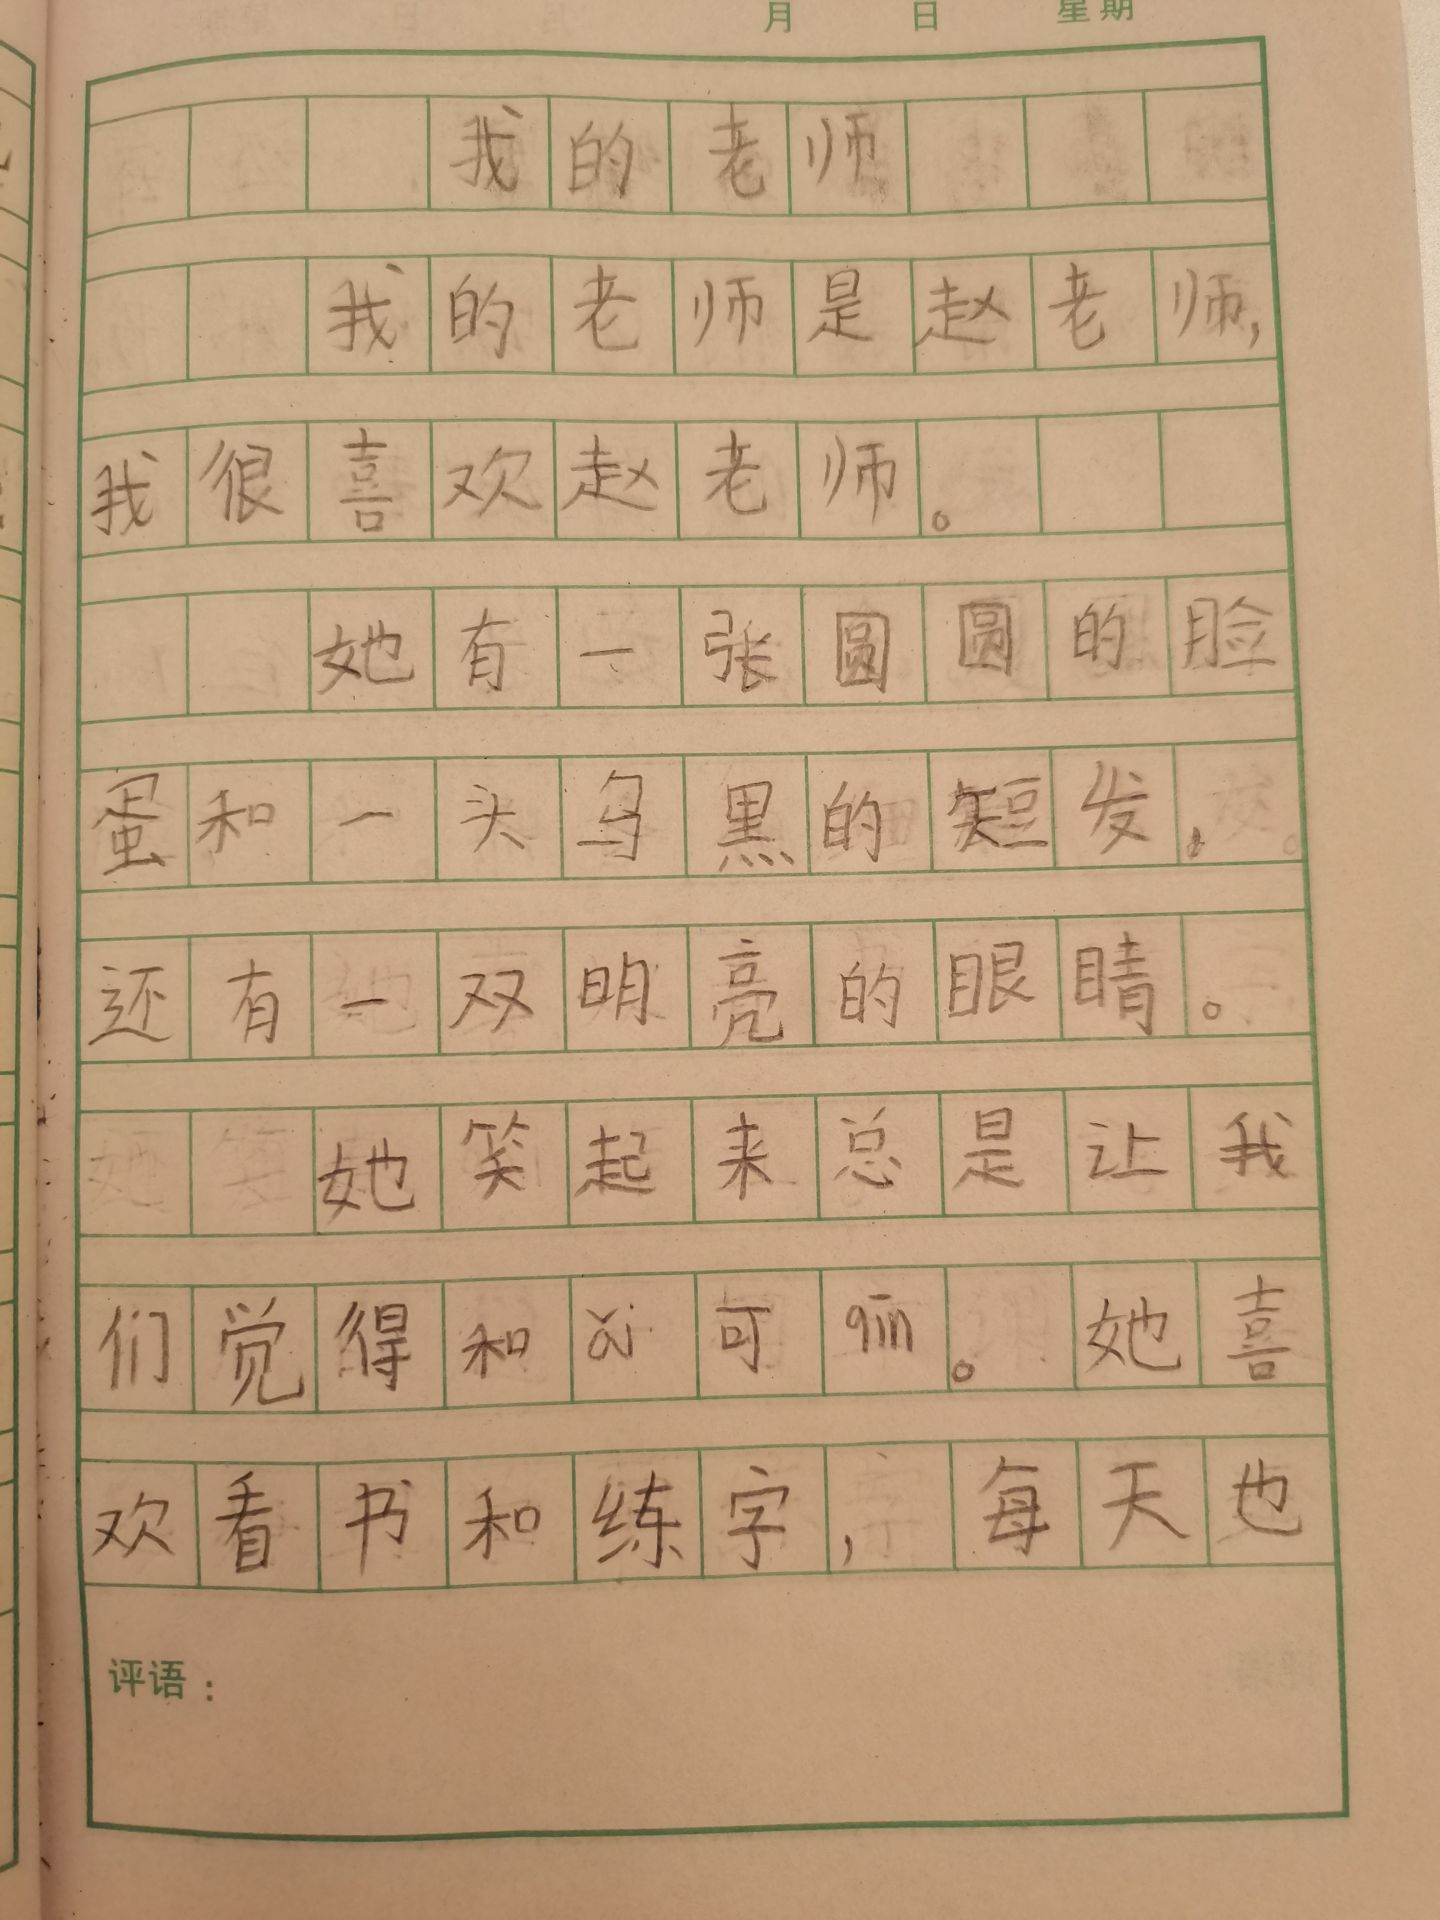 月 日 星期
我的老师
我的老师是赵老师,
我很喜欢赵老师。
她有一张圆圆的脸
蛋和一头乌黑的短发,
还有一双明亮的眼睛。
她笑起来总是让我
们觉得和ǎi可qīn。她喜
欢看书和练字,每天也
评语: